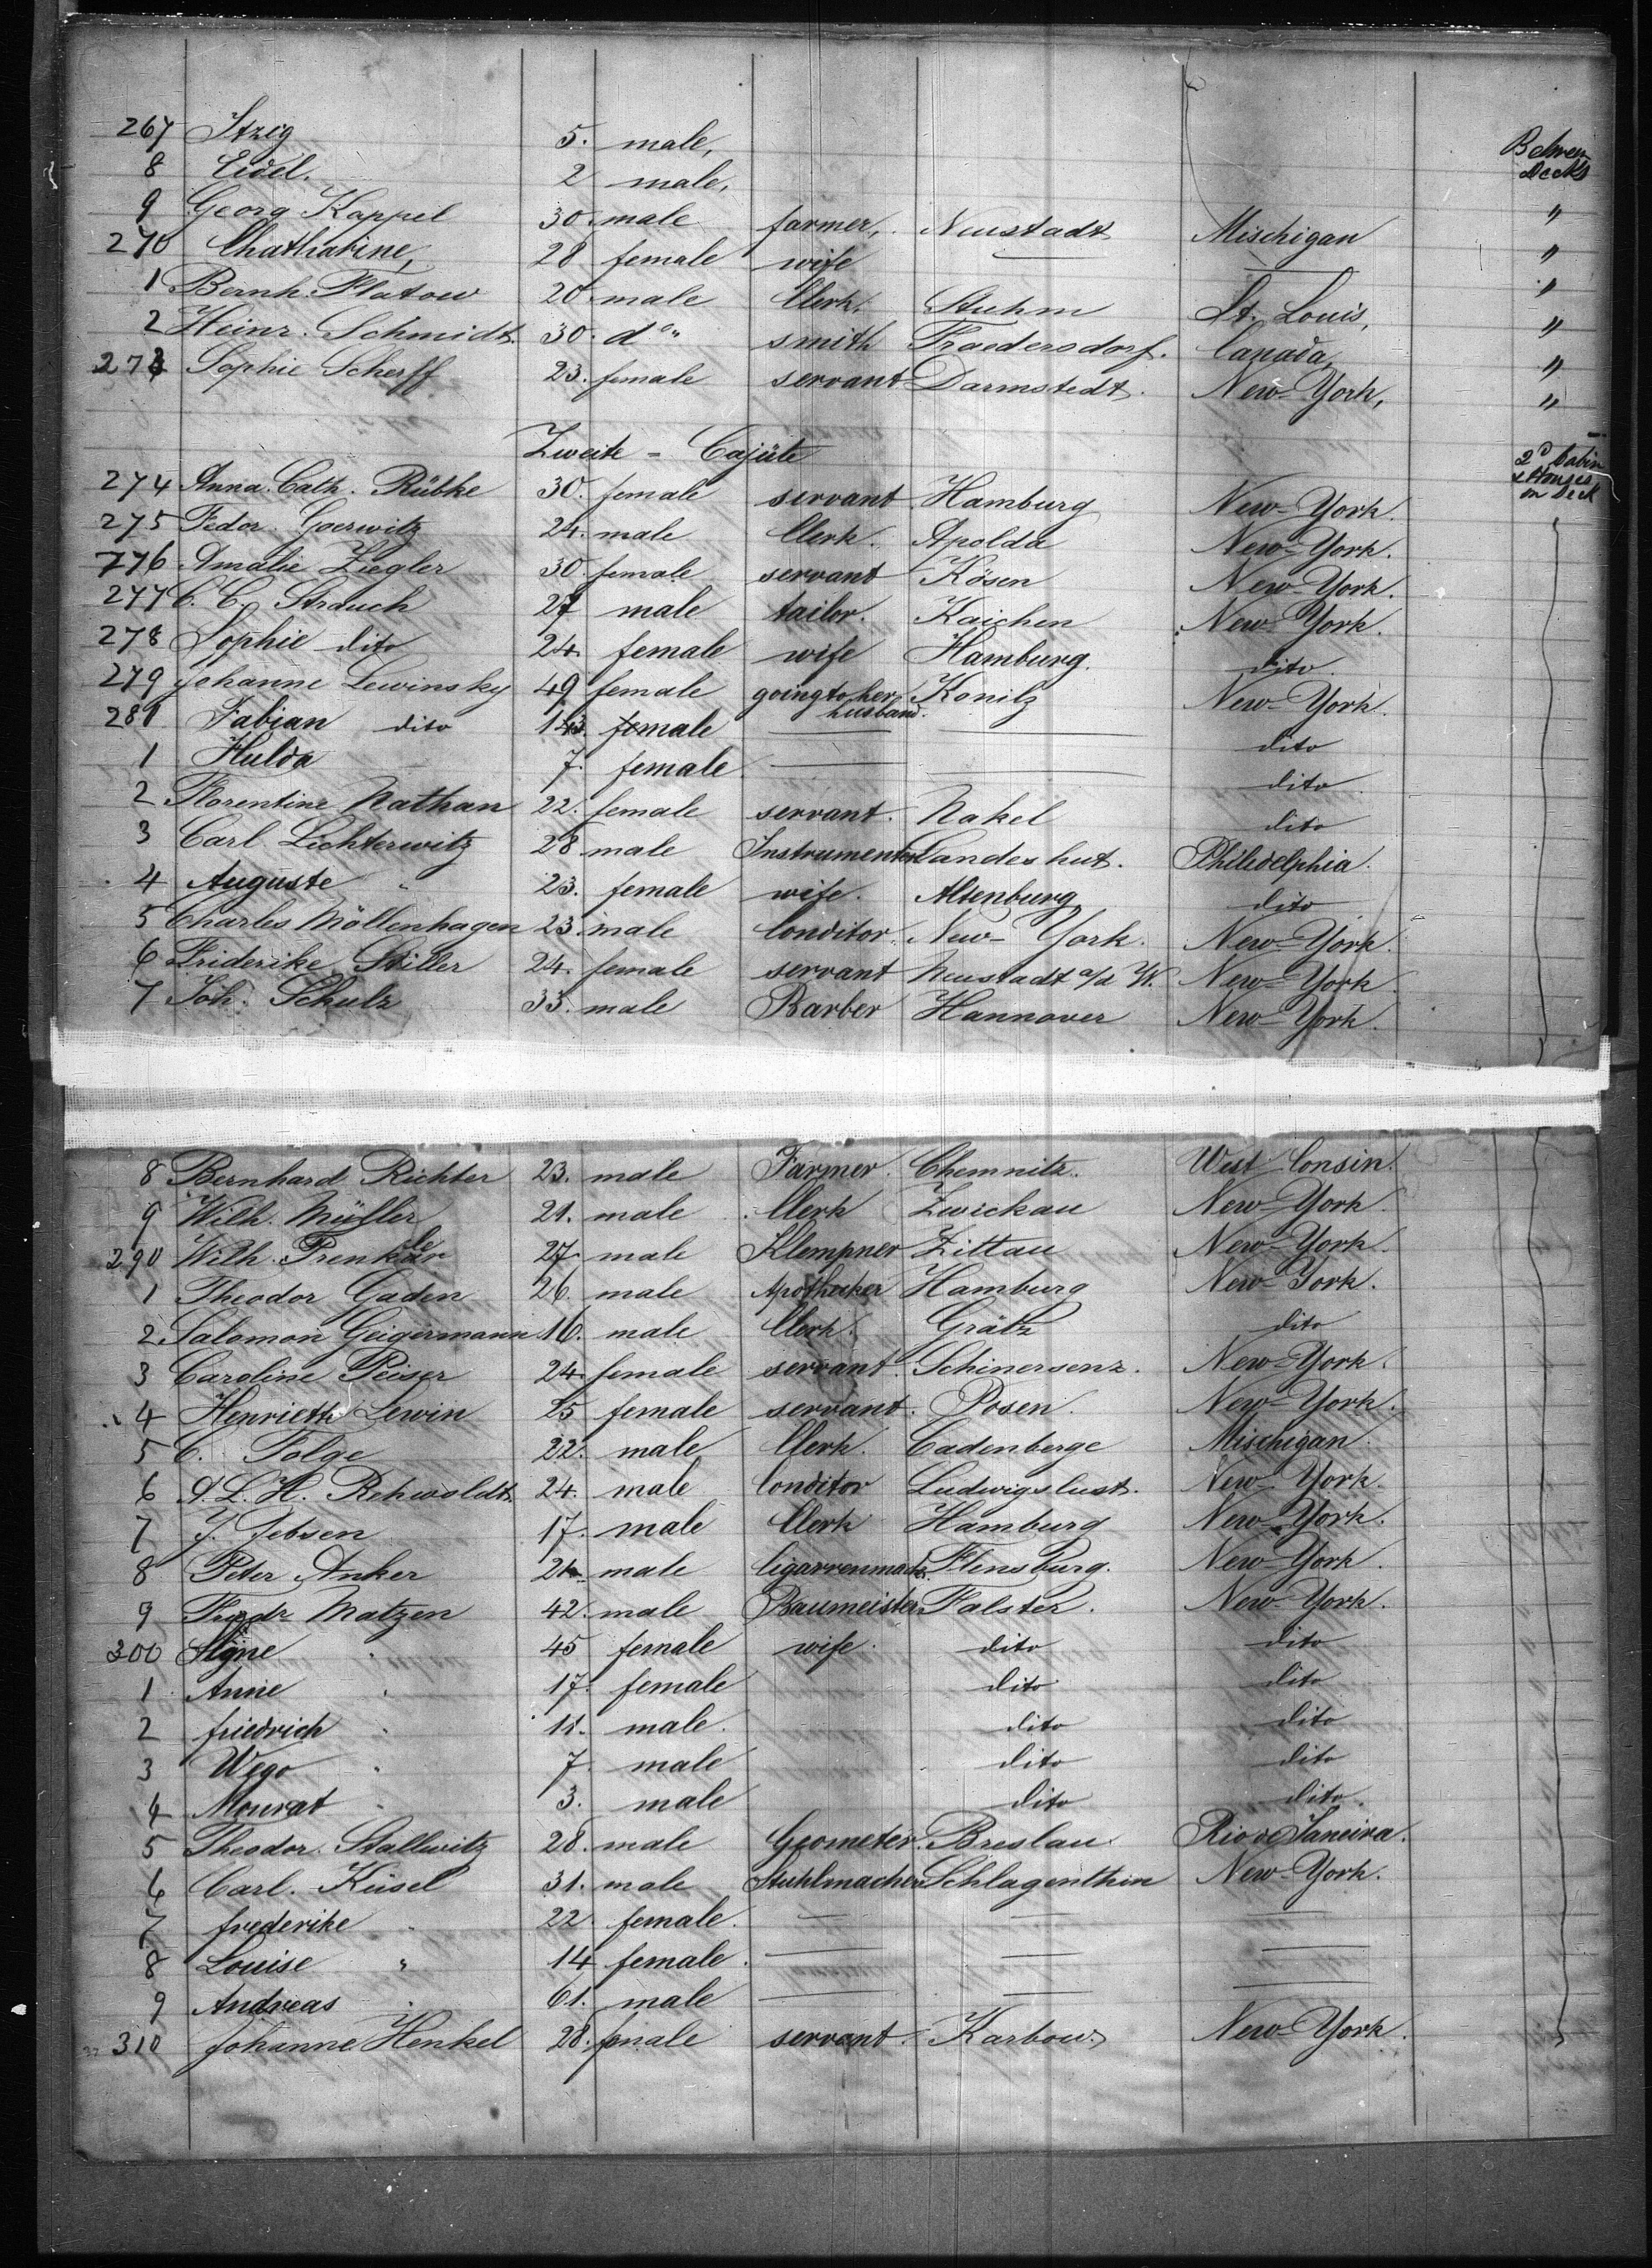 267 Itzig 5. male, Betwen Decks
8 Eidel. 2 male, "
9 Georg Kappel 30. male farmer, Neustadt Mischigan "
270 Chatharine, 28 female wife — — "
1 Bernh. Flatow 20. male Clerk, Stuhm St. Louis, "
2 Heinr. Schmidt. 30. do" smith Fraedersdorf. Canada, "
273 Sophie Scherff 23. female servant Darmstedt. New-York, "
Zweite - Cajüte
274 Anna Cath. Rübke 30. female servant Hamburg New-York. 2d Cabin & Houses on Deck
275 Fedor. Goerwitz 24. male Clerk. Apolda New-York.
776 Amalie Ziegler 30. female servant Kösen New-York.
277 C. C. Strauch 27 male tailor. Kaichen New-York.
278 Sophie dito 24. female wife Hamburg. dito
279 Johanne Lewinsky 49 female going to her husband. Konitz New-York.
281 Fabian dito male — — dito
1 Hulda 7. female — — dito
2 Florentine Nathan 22. female servant. Nakel dito
3 Carl Lichterwitz 28 male Landeshut. Philedelphia.
4 Auguste " 23. female wife. Altenburg dito
5 Charles Möllenhagen 23. male Conditor. New-York. New-York.
6 Friderike Stiller 24. female servant Neustadt a/d W. New-York.
7 Joh. Schulz 33. male Barber Hannover New-York.
8 Bernhard Richter 23. male Farmer. Chemnitz. West Consin.
9 Wilh. Müller 21. male Clerk Zwickau New-York.
290 Wilh. 27. male Klempner Zittau New-York.
1 Theodor Gaden 26. male Apothecker Hamburg New-York.
2 Salomon Geigermann 16. male Clerk. Grätz dito
3 Caroline Peiser 24. female servant. Schinersenz. New-York.
4 Henriette Lewin 25 female servant. Posen. New-York.
5 C. Folge 22. male Clerk. Cadenberge Mischigan.
6 A. L. H. Rehwoldt. 24. male Conditor Ludwigslust. New-York.
7 J. Jebsen 17. male Clerk Hamburg New-York.
8 Peter Anker male Cigarrenmach. Flensburg. New-York.
9 Friedr Matzen 42. male Baumeister Falster. New-York.
300 45 female wife. dito dito
1 Anne " 17. female dito dito
2 friedrich " 11. male. dito dito
3 Wego " 7. male dito dito
4 Mourat " 3. male dito dito
5 Theodor. Stallwitz 28. male Geometer. Breslau Rio de Janeira.
6 Carl. Küsel 31. male Stuhlmacher Schlagenthin New-York.
7 frederike " 22. female. — — —
8 Louise " 14 female. — — —
9 Andreas " 61. male — — —
310 Johanne Henkel 28. female servant. Karbow New-York.